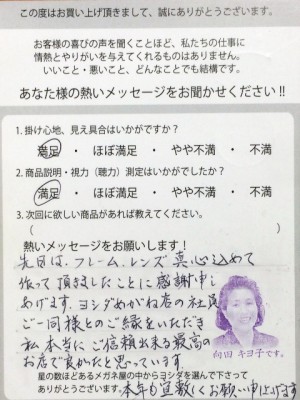 この度はお買い上げ頂きまして、誠にありがとうございます。
お客様の喜びの声を聞くことほど、私たちの仕事に
情熱とやりがいを与えてくれるものはありません。
いいこと・悪いこと、どんなことでも結構です。
あなた様の熱いメッセージをお聞かせください!!
1. 掛け心地、見え具合はいかがですか?
満足 ・ ほぼ満足 ・ やや不満 ・ 不満
2. 商品説明・視力(聴力)測定はいかがでしたか?
満足 ・ ほぼ満足 ・ やや不満 ・ 不満
3. 次回に欲しい商品があれば教えてください。
(
熱いメッセージをお願いします!
先日は、フレーム、レンズ真心込めて
作って頂きましたことに感謝申し
あげます。ヨシダめがね店の社員
ご一同様とのご縁をいただき
私本当にご信頼出来る最高の
お店で良かったと思っています
向田 キヨ子です。
星の数ほどあるメガネ屋の中からヨシダを選んで下さって
ありがとうございます。
本年も宜敷くお願い申し上げます